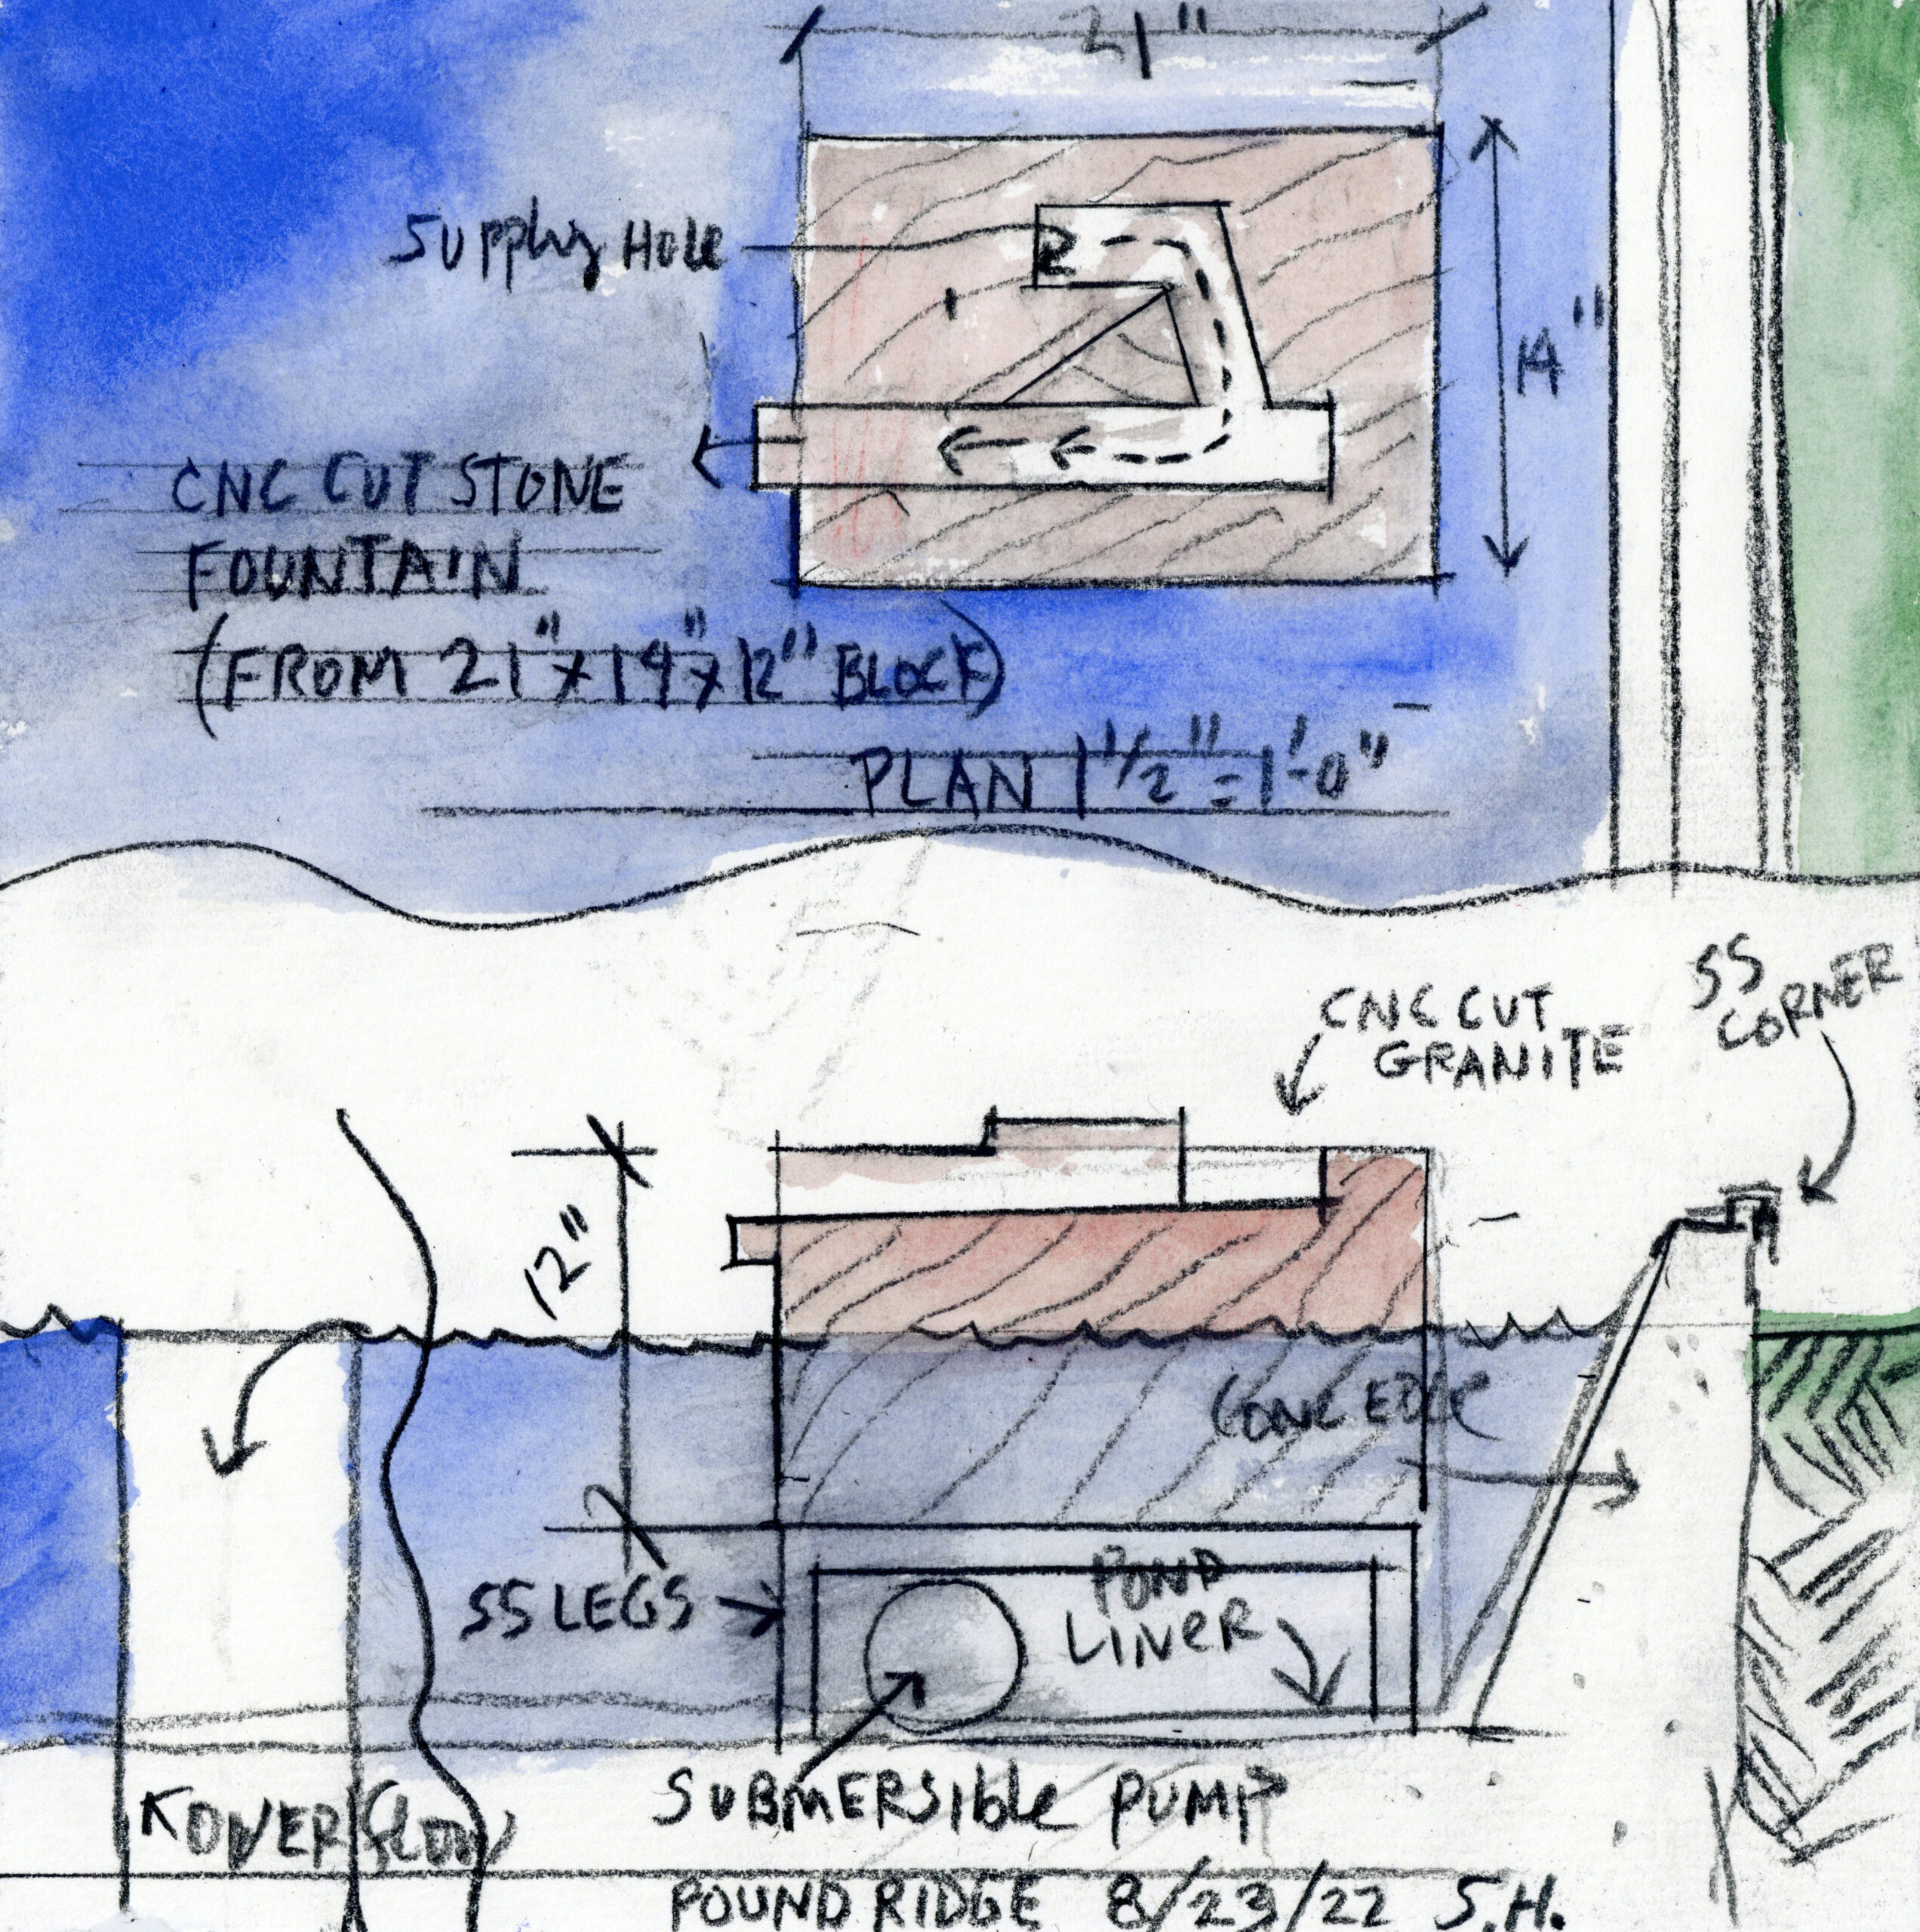 21"
Supply HOLE
14"
CNC CUT STONE
FOUNTAIN
(FROM 21"x14"x12" BLOCK)
PLAN 1 1/2" = 1'-0"
SS
CORNER
CNC CUT
GRANITE
12"
CONC EDGE
POND
LINER
SS LEGS
OVERflow
SUBMERSIble PUMP
POUND RIDGE 8/23/22 S.H.